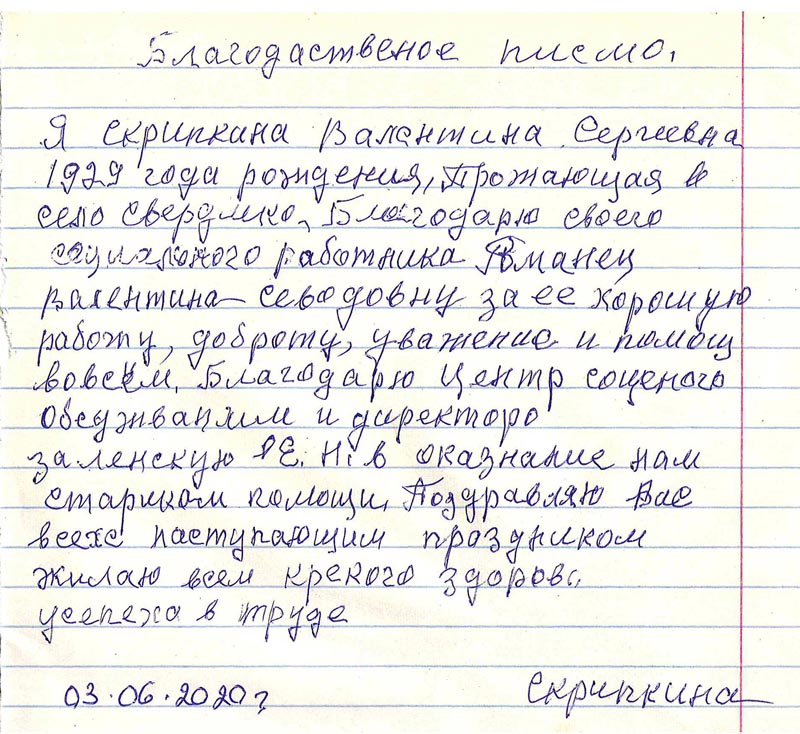 Благодаственое писмо.
Я Скрипкина Валентина Сергеевна
1929 года рождения, Прожающая в
село Свердлико, Благодарю своего
социального работника Романец
Валентина Севодовну за ее хорошую
работу, доброту, уважение и помощ
вовсем. Благодарю Центр соценого
и директоро
заленскую Е. Н. в оказнание нам
стариком помощи, Поздравляю Вас
всехс наступающим праздником
жилаю всем крекого здоровь,
усепеха в труде
03.06.2020г
Скрипкина